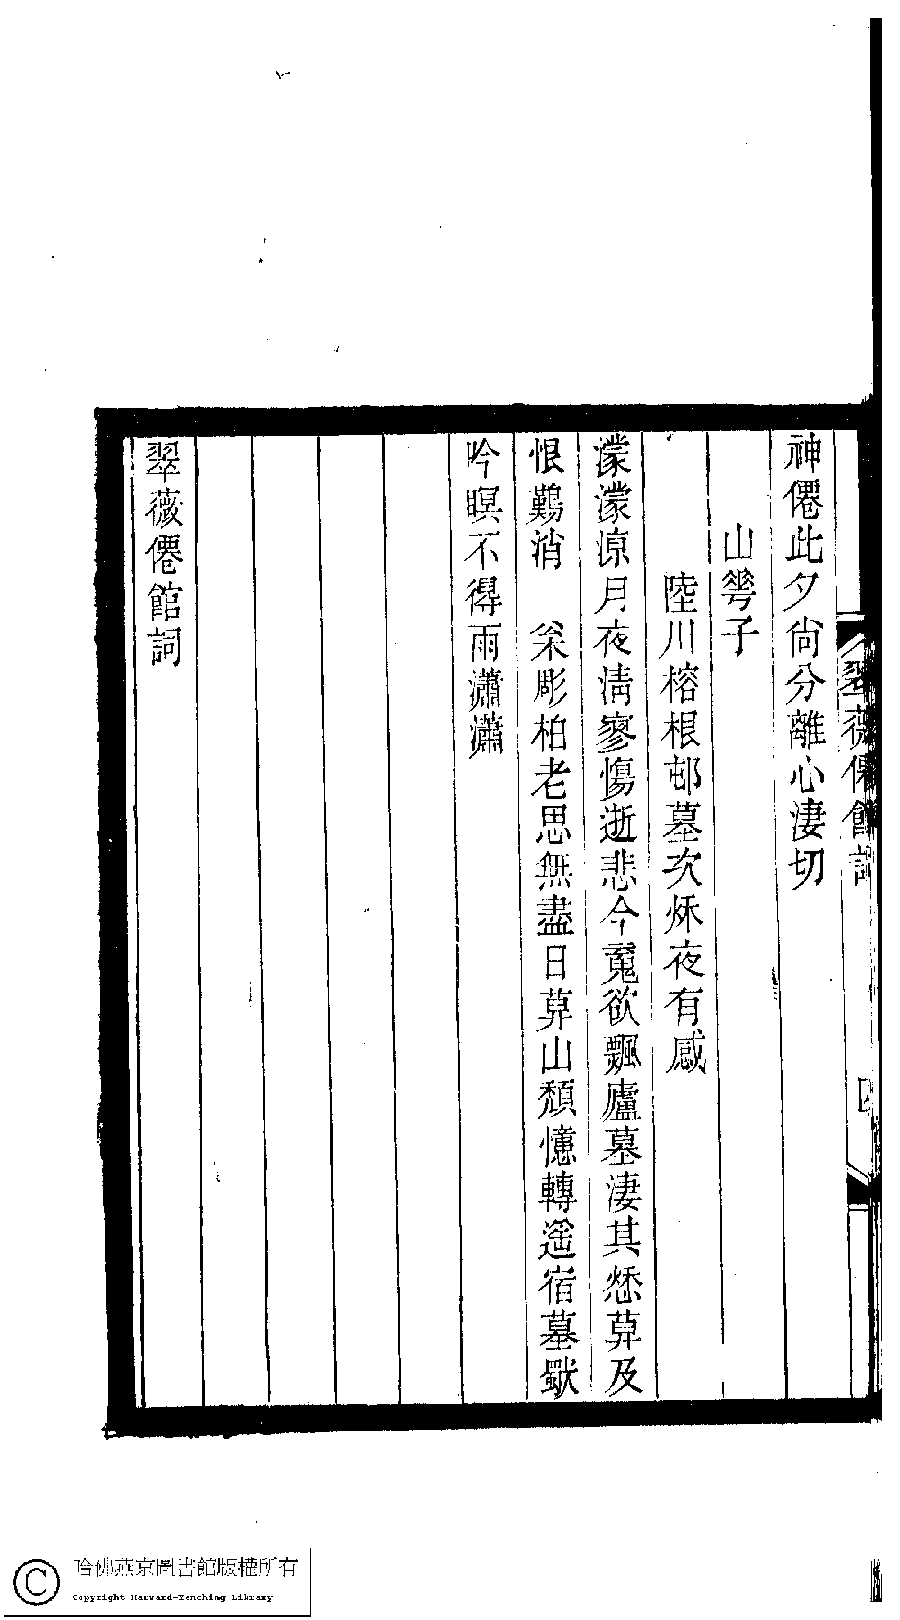 神僊此夕尙分離心淒切
山䓙子
陸川榕根邨墓次秌夜有感
濛濛凉月夜淸寥慯逝悲今䰟欲飄廬墓淒其愁萛及
恨鸂消　枀彫柏老思無盡日萛山頹憶轉遥宿墓獸
吟瞑不得雨瀟瀟
翠薇僊館詞
翠薇僊館詞
四
哈佛燕京圖書館版權所有
Copyright Harvard-Yenching Library